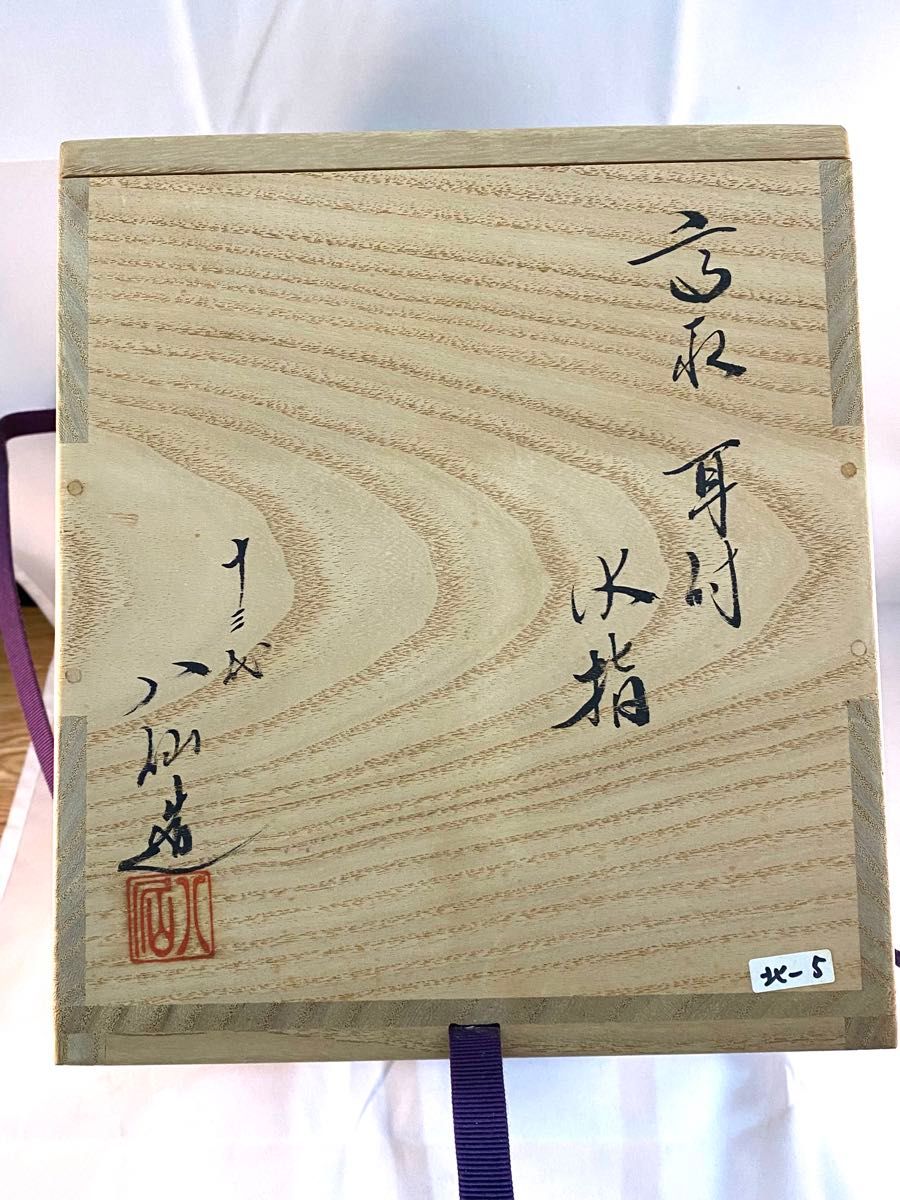 高取
耳付
水指
十三代
八仙造
八仙
北-5